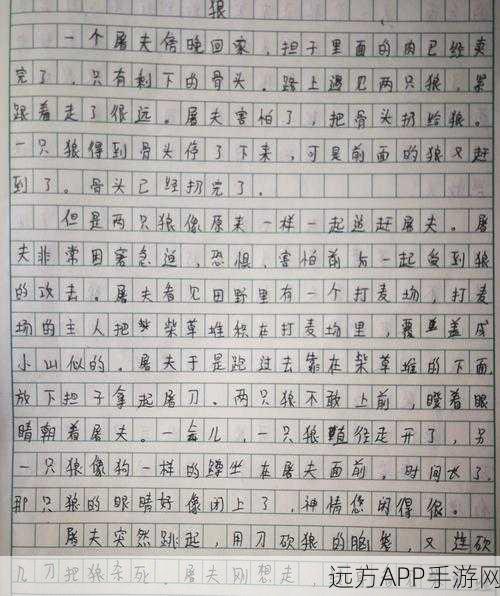 狼
一个屠夫傍晚回家，担子里面的肉已经卖
完了，只有剩下的骨头。路上遇见两只狼，紧
跟着走了很远。屠夫害怕了，把骨头扔给狼。
一只狼得到骨头停了下来，可是前面的狼又赶
到了。骨头已经扔完了。
但是两只狼像原来一样一起追赶屠夫。屠
夫非常困窘急迫，恐惧，害怕前后一起受到狼
的攻击。屠夫看见田野里有一个打麦场，打麦
场的主人把柴草堆积在打麦场里，覆盖成
小山似的。屠夫于是跑过去靠在柴草堆的下面，
放下担子拿起屠刀。两只狼不敢上前，瞪着眼
睛朝着屠夫。一会儿，一只狼径走开了，另
一只狼像狗一样的蹲坐在屠夫面前。时间长了，
那只狼的眼睛好像闭上了，神情悠闲得很。
屠夫突然跳起，用刀砍狼的脑袋，又连砍
几刀把狼杀死。屠夫刚想走，
远方APP手游网